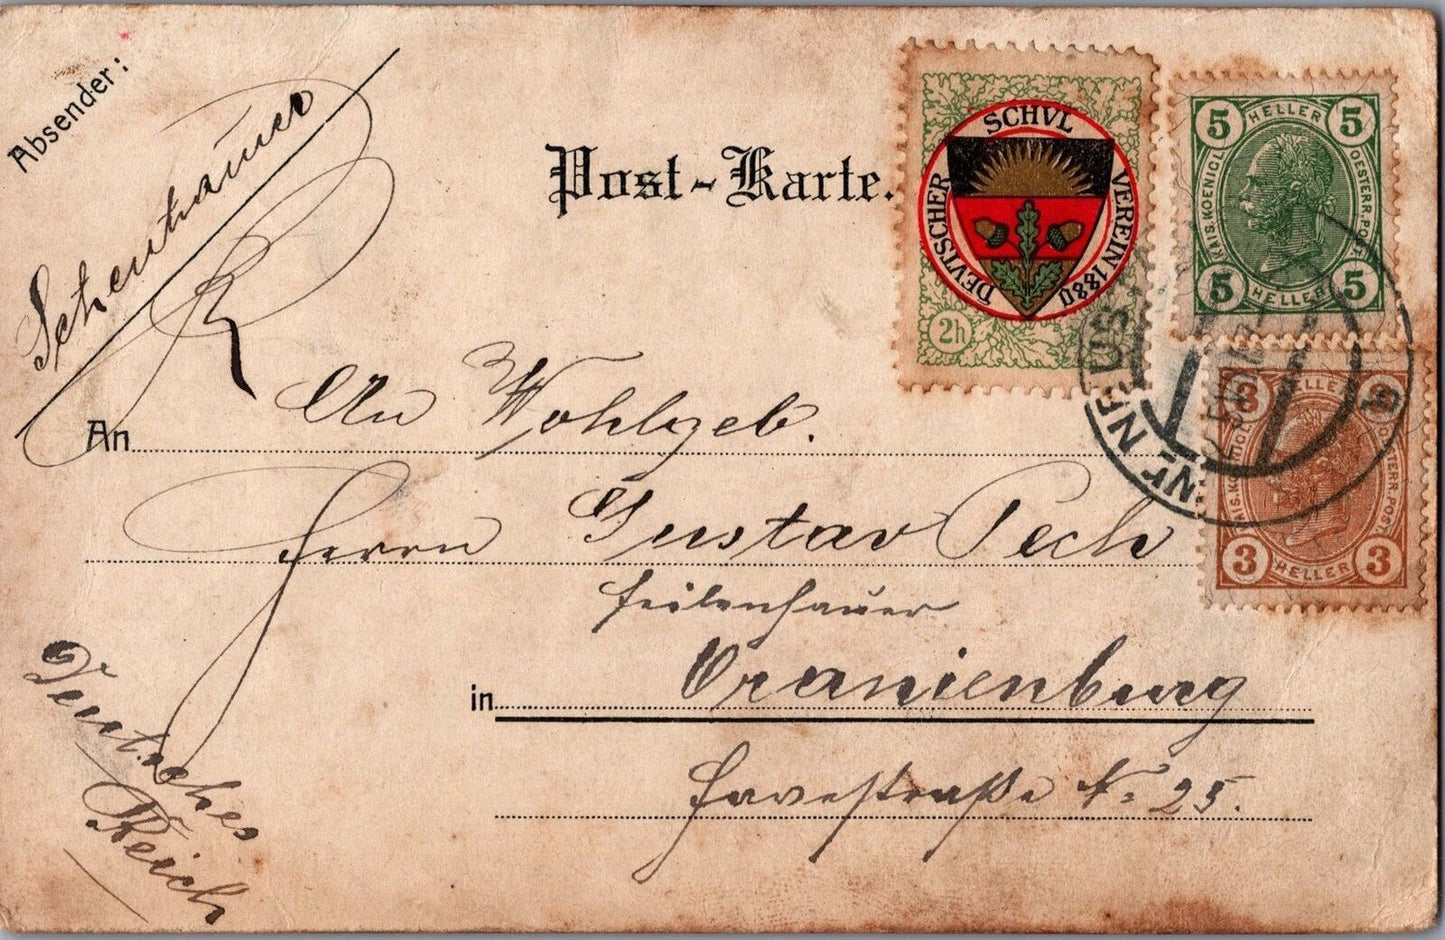 Absender:
Post-Karte.
DEVTSCHER SCHVL VEREIN 1880
2h
5 HELLER 5
KAIS. KOENIGL. OESTERR. POST
5 HELLER 5
3 HELLER 3
KAIS. KOENIGL. OESTERR. POST
3 HELLER 3
An
An Wohlgeb.
Herrn Gustav Pech
Feilenhauer
in Oranienburg
Havestraße N: 25.
Deutsches
Reich